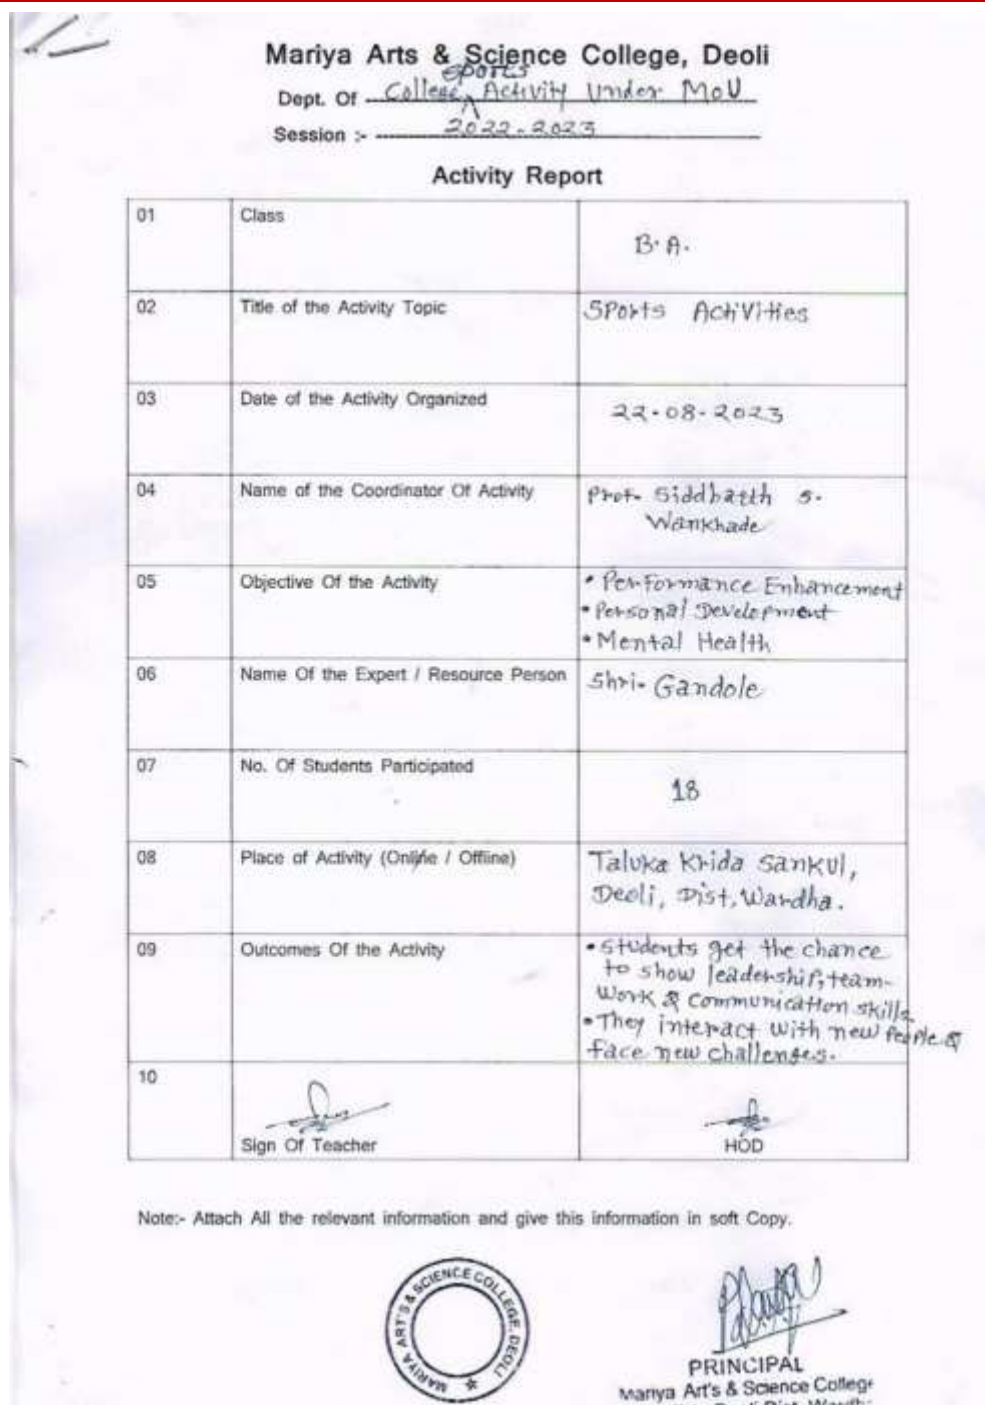 Mariya Arts & Science College, Deoli
Sports
Dept. Of College Activity Under MoU
Session :- 2022-2023
Activity Report
01 Class B.A.
02 Title of the Activity Topic Sports Activities
03 Date of the Activity Organized 22-08-2023
04 Name of the Coordinator Of Activity Prof. Siddharth S.
Wankhade
05 Objective Of the Activity • Performance Enhancement
• Personal Development
• Mental Health
06 Name Of the Expert / Resource Person Shri. Gandole
07 No. Of Students Participated 18
08 Place of Activity (Online / Offline) Taluka Krida Sankul,
Deoli, Dist, Wardha.
09 Outcomes Of the Activity • Students get the chance
to show leadership, team-
work & communication skills
• They interact with new people &
face new challenges.
10
Sign Of Teacher HOD
Note:- Attach All the relevant information and give this information in soft Copy.
MARIYA ART'S & SCIENCE COLLEGE, DEOLI
PRINCIPAL
Mariya Art's & Science College